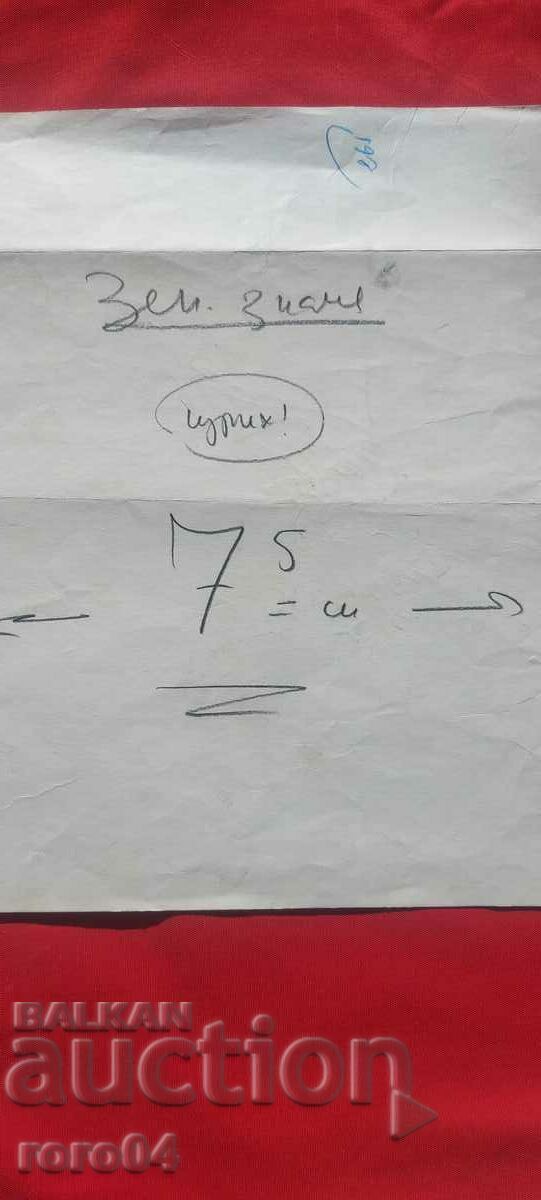 192
Зем. знаме
щрих!
7 5 = см
BALKAN
auction
roro04